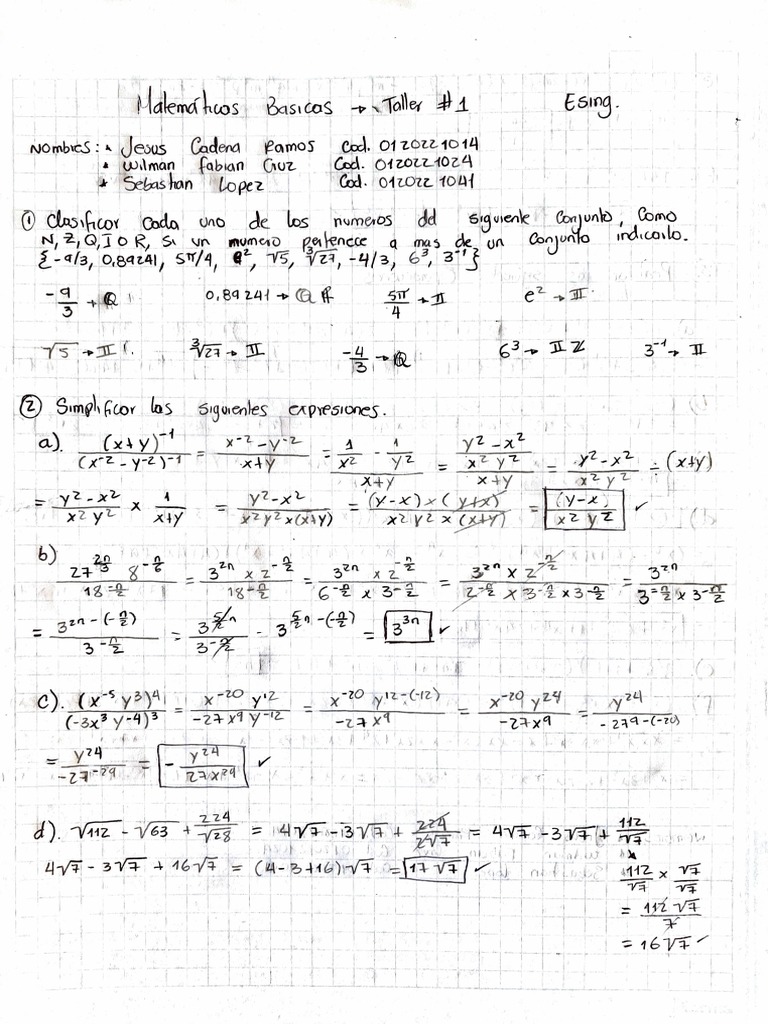 Matemáticas Basicas → Taller #1 Esing.
Nombres: • Jesus Cadena Ramos Cod. 012022 1014
• Wilman Fabian Cruz Cod. 012022 1024
• Sebasthan Lopez Cod. 012022 1041
① Clasificar cada uno de los numeros del siguiente conjunto, como
N, Z, Q, I O R, si un numero pertenece a mas de un conjunto indicarlo.
{-9/3, 0,89241, 5π/4, e², √5, ∛27, -4/3, 6³, 3⁻¹}
-9/3 → Q 0,89241 → Q 5π/4 → II e² → II
√5 → II ∛27 → II -4/3 → Q 6³ → II Z 3⁻¹ → II
② Simplificar las siguientes expresiones.
a). (x+y)⁻¹/(x⁻² - y⁻²)⁻¹ = (x⁻² - y⁻²)/(x+y) = (1/x² - 1/y²)/(x+y) = ((y² - x²)/(x² y²))/(x+y) = (y² - x²)/(x² y²) ÷ (x+y)
= (y² - x²)/(x² y²) × 1/(x+y) = (y² - x²)/(x² y² × (x+y)) = ((y-x) × (y+x))/(x² y² × (x+y)) = (y-x)/(x² y²) ✓
b) 27^(2n/3) 8^(-n/6)/18^(-n/2) = (3^(2n) × 2^(-n/2))/18^(-n/2) = (3^(2n) × 2^(-n/2))/(6^(-n/2) × 3^(-n/2)) = (3^(2n) × 2^(-n/2))/(2^(-n/2) × 3^(-n/2) × 3^(-n/2)) = 3^(2n)/(3^(-n/2) × 3^(-n/2))
= 3^(2n - (-n/2))/3^(-n/2) = 3^(5/2 n)/3^(-n/2) - 3^(5/2 n - (-n/2)) = 3^(3n) ✓
c). (x⁻⁵ y³)⁴/(-3x³ y-4)³ = x⁻²⁰ y¹²/(-27x9 y⁻¹²) = x⁻²⁰ y^(12-(-12))/(-27x⁹) = x⁻²⁰ y²⁴/(-27x9) = y²⁴/(-27^(9-(-20)))
= y²⁴/(-27⁻²⁹) = - y²⁴/(27x²⁹) ✓
d). √112 - √63 + 224/√28 = 4√7 - 3√7 + 224/(2√7) = 4√7 - 3√7 + 112/√7
4√7 - 3√7 + 16√7 = (4-3+16)√7 = 17√7 ✓
112/√7 × √7/√7
= 112√7/7
= 16√7 ✓